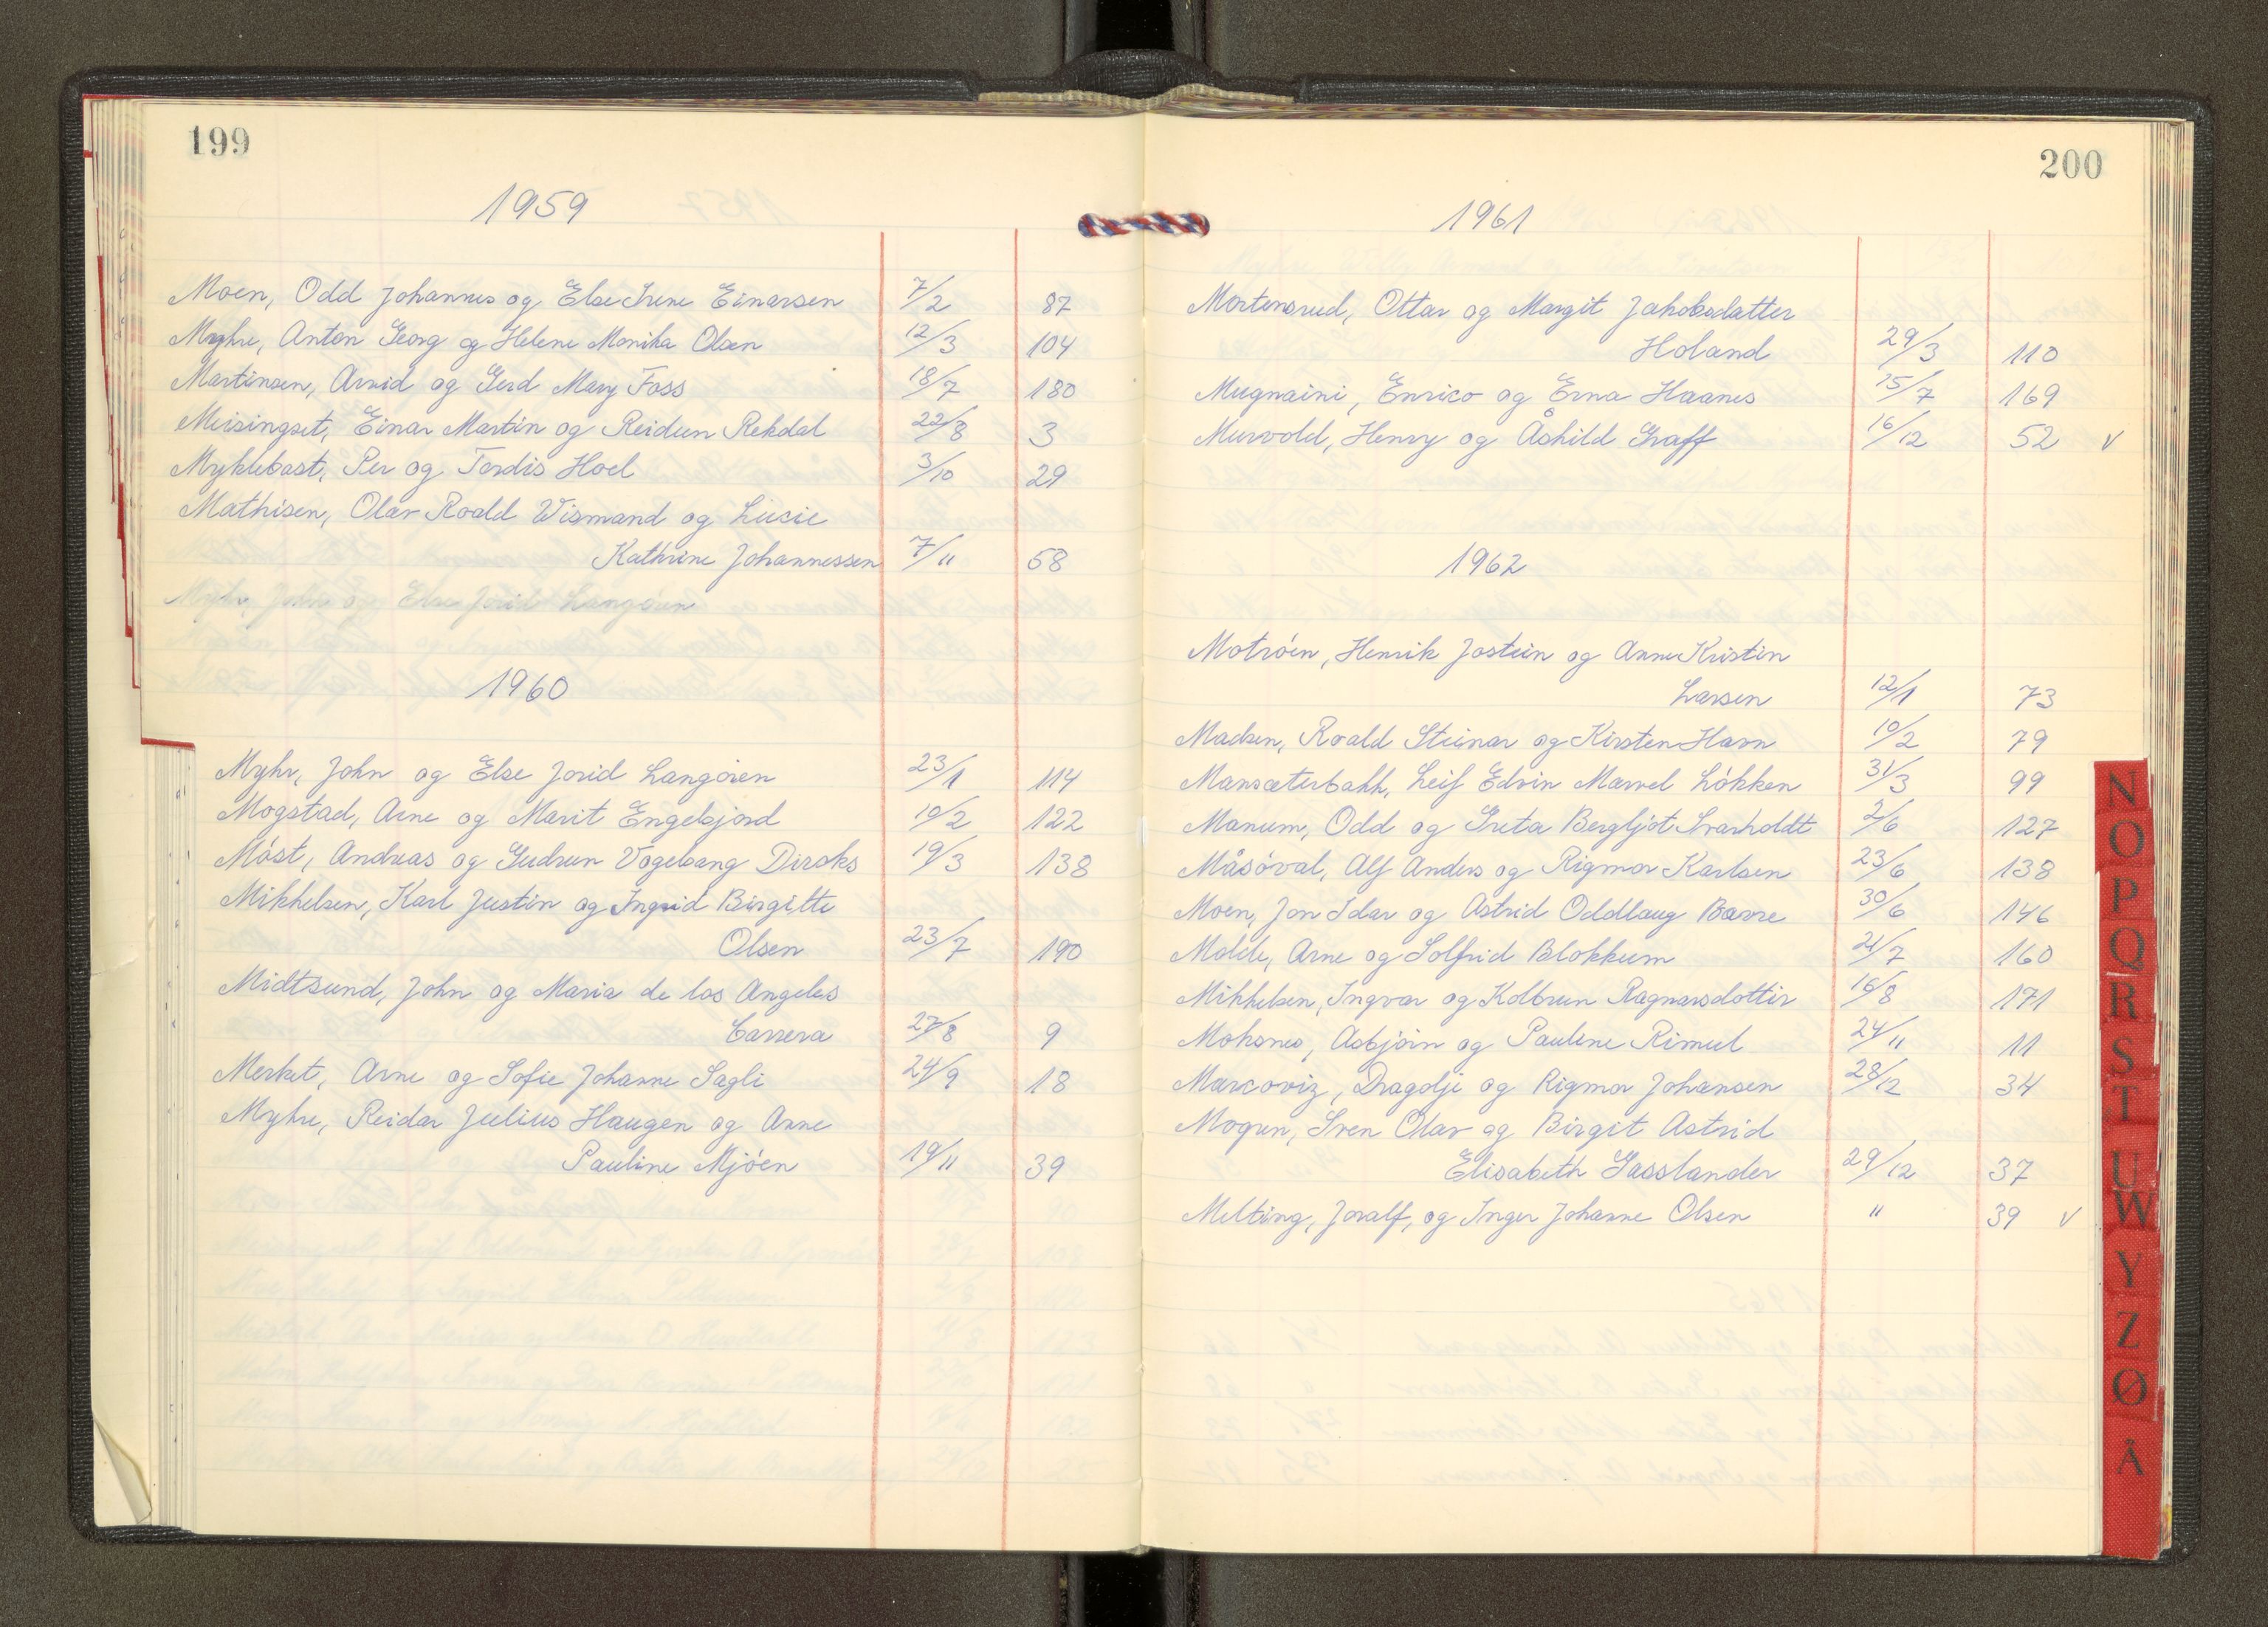 199
1959
Moen, Odd Johannes og Else Irene Einarsen 7/2 87
Myhre, Anton Georg og Helene Monika Olsen 12/3 104
Martinsen, Arvid og Gerd Mary Foss 18/7 180
Meisingset, Einar Martin og Reidun Rekdal 22/8 3
Myklebast, Per og Tordis Hoel 3/10 29
Mathisen, Olav Roald Wismand og Lucie
Kathrine Johannessen 7/11 58
Myhr, John og Else Jorid Langören
1960
Myhr, John og Else Jorid Langören 23/1 114
Mogstad, Arne og Marit Engelsjord 10/2 122
Möst, Andreas og Gudrun Vogelsang Dirsks 19/3 138
Mikkelsen, Karl Justin og Ingrid Birgitte
Olsen 23/7 190
Midtsund, John og Maria de los Angeles
Carrera 27/8 9
Merket, Arne og Sofie Johanne Sagli 24/9 18
Myhre, Reidar Julius Haugen og Anne
Pauline Mjöen 19/11 39
200
1961
Mortensrud, Ottar og Margit Jakobsdatter
Holand 29/3 110
Mugnaini, Enrico og Erna Haanes 15/7 169
Murvold, Henry og Åshild Graff 16/12 52 v
1962
Motröen, Henrik Jostein og Anne Kristin
Larsen 12/1 73
Madsen, Roald Steinar og Kirsten Havn 10/2 79
Mansæterbakk, Leif Edvin Marvel Lökken 31/3 99
Manum, Odd og Greta Bergljot Svarholdt 2/6 127
Måsöval, Alf Anders og Rigmor Karlsen 23/6 138
Moen, Jon Idar og Astrid Oddlaug Bavre 30/6 146
Molde, Arne og Solfrid Blokkum 21/7 160
Mikkelsen, Ingvar og Kolbrun Ragnarsdottir 16/8 171
Moksnes, Asbjörn og Pauline Rimul 24/11 11
Marcoviz, Dragolje og Rigmor Johansen 28/12 34
Mogren, Sven Olav og Birgit Astrid
Elisabeth Gasslander 29/12 37
Melting, Joralf, og Inger Johanne Olsen " 39 v
N
O
P
Q
R
S
T
U
W
Y
Z
Ø
Å